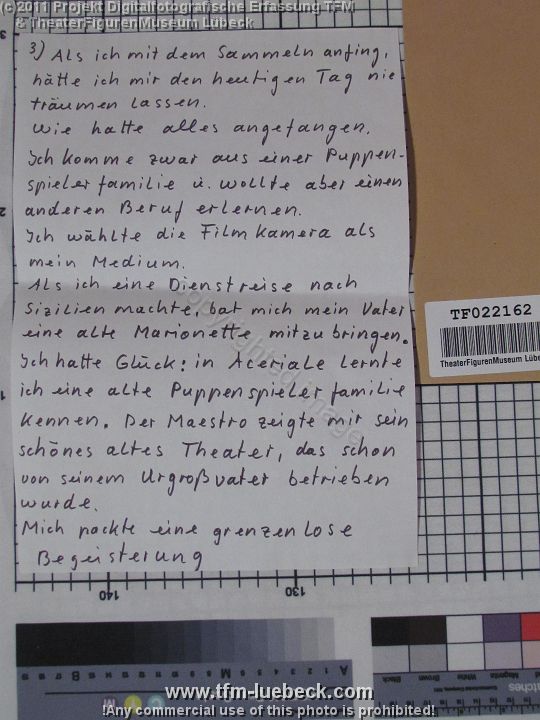 (c)2011 Projekt Digitalfotografische Erfassung TFM
& TheaterFigurenMuseum Lübeck
3) Als ich mit dem Sammeln anfing,
hätte ich mir den heutigen Tag nie
träumen lassen.
Wie hatte alles angefangen.
Ich komme zwar aus einer Puppen-
spielerfamilie u. wollte aber einen
anderen Beruf erlernen.
Ich wählte die Filmkamera als
mein Medium.
Als ich eine Dienstreise nach
Sizilien machte, bat mich mein Vater
eine alte Marionette mitzubringen.
Ich hatte Glück: in Aceriale lernte
ich eine alte Puppenspielerfamilie
kennen. Der Maestro zeigte mir sein
schönes altes Theater, das schon
von seinem Urgroßvater betrieben
wurde.
Mich packte eine grenzenlose
Begeisterung
TF022162
TheaterFigurenMuseum Lübec
Copyrighted image
3
2
1
140
130
Black
Brown
White
Magenta
A
M
www.tfm-luebeck.com
!Any commercial use of this photo is prohibited!